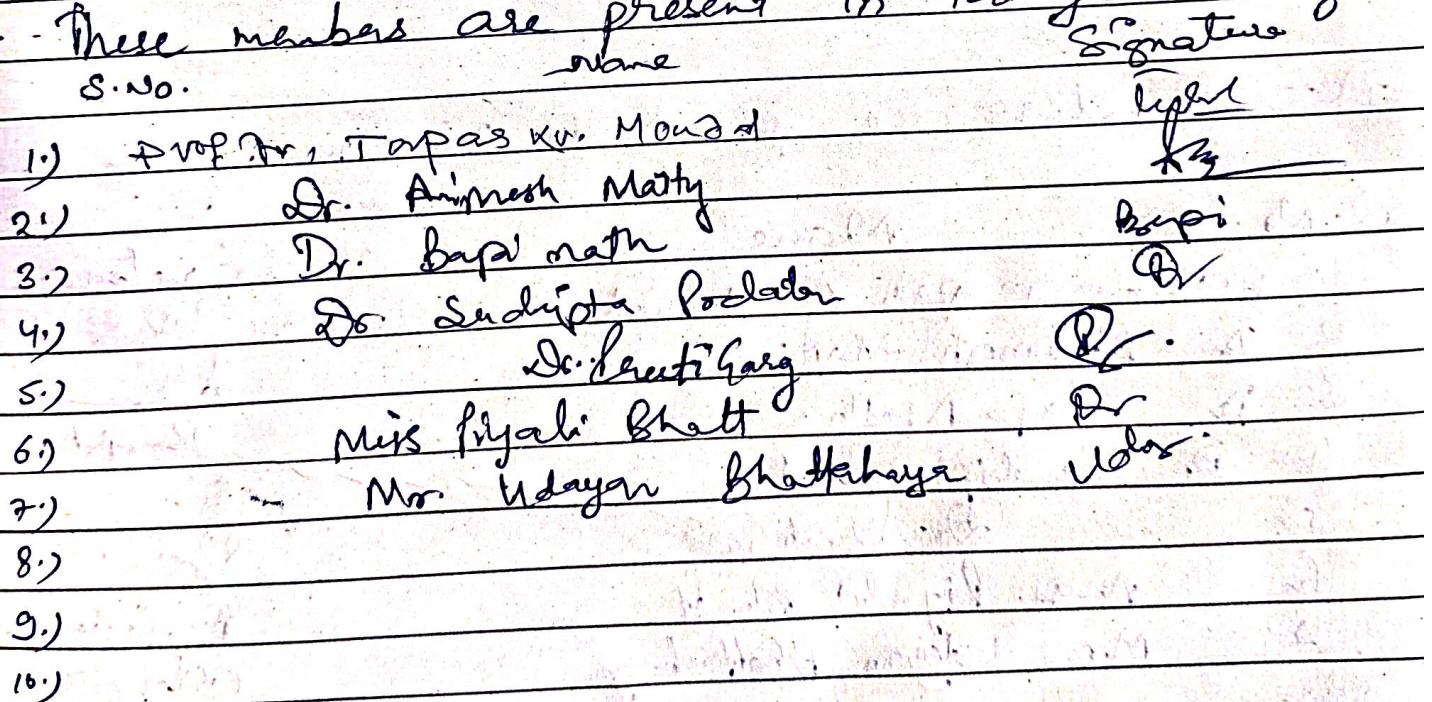 These members are present in
S.No. Name Signature
1.) Prof. Dr. Tapas Kr. Mondal
2.) Dr. Animesh Maity
3.) Dr. Bapi nath Bapi
4.) Dr Sudipta Podder
5.) Dr. Preeti Garg
6.) Miss Piyali Bhatt
7.) Mr. Udayan Bhattachaya
8.)
9.)
10.)